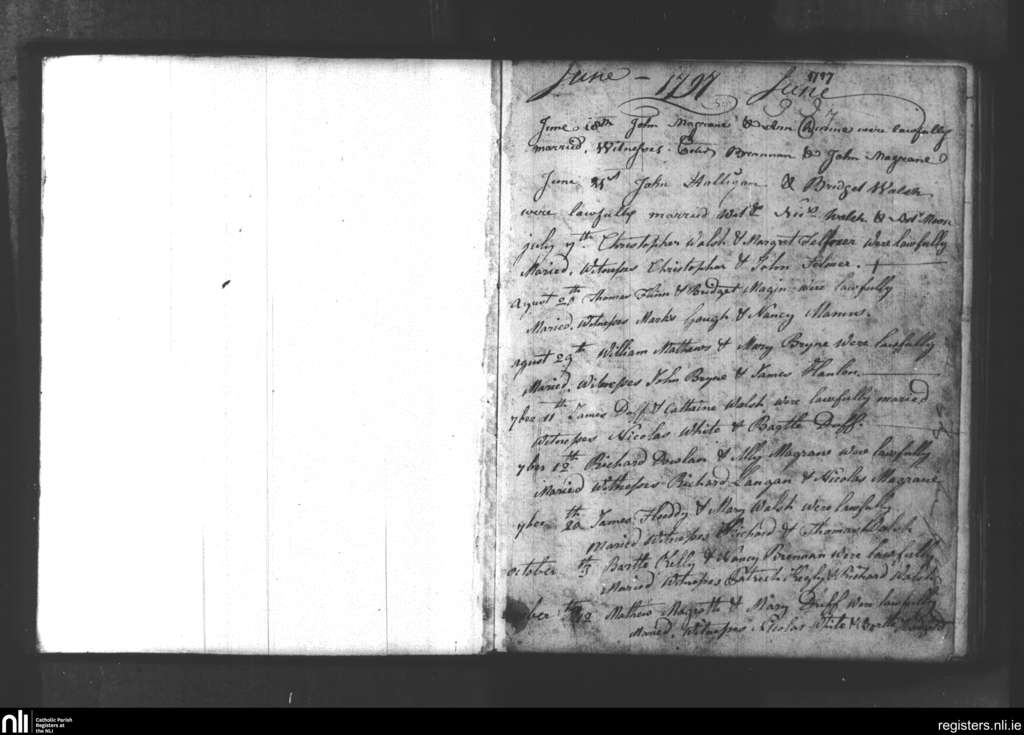 June – 1797 June
1797
June 18th John Magrane & Ann were lawfully
married. Witnesses. Brennan & John Magrane
June 21st John Halligan & Bridget Walsh
were lawfully married Walsh &
july 7th Christopher Walsh & Margret were lawfully
Maried. Witnesses Christopher & John
Agust th Thomas Flinn & Bridget Magin were lawfully
Maried. Witnesses Marks Gough & Nancy
Agust 29th William Mathews & Mary Bryne were lawfully
Maried. Witnesses John Bryne & James Hanlon
7ber 11th James Duff & Cattaine Walsh were lawfully maried
Witnesses Nicolas White & Bartle Duff.
7ber 12th Richard Dowlain & Ally Magrane were lawfully
Maried Witnesses Richard Langan & Nicolas Magrane
7ber 20th James Floddy & Mary Walsh were lawfully
Maried Witnesses Richard & Thomas
October th Bartle Kelly & Nancy Brennan were lawfully
Maried Witnesses & Richard Walsh
ber 12th Mathew & Mary Duff were lawfully
Maried. Witnesses Nicolas White & Bartle
nli
Catholic Parish
Registers at
the NLI
registers.nli.ie